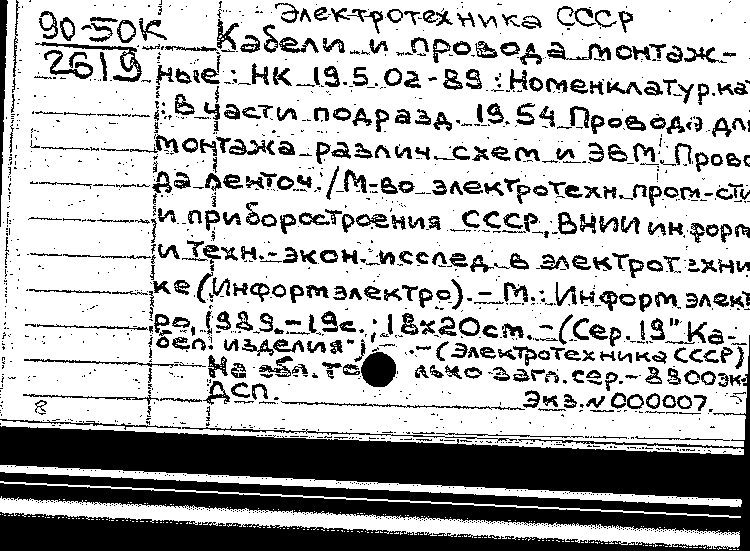 Электротехника СССР
90-50К
2619
Кабели и провода монтаж-
ные : НК 19.5.02-89 : Номенклатур.ка
: В части подразд. 19.54 Провода для
монтажа различ. схем и ЭВМ. Прово
да ленточ. / М-во электротехн. пром-сти
и приборостроения СССР, ВНИИ информ
и техн.-экон. исслед. в электротехни
ке (Информэлектро). - М. : Информэлект
ро, 1989. - 19с. ; 18х20см. - (Сер. 19" Ка-
бел. изделия"). - (Электротехника СССР)
На обл. только загл. сер. - 8800экз
ДСП. Экз. N 000007.
8